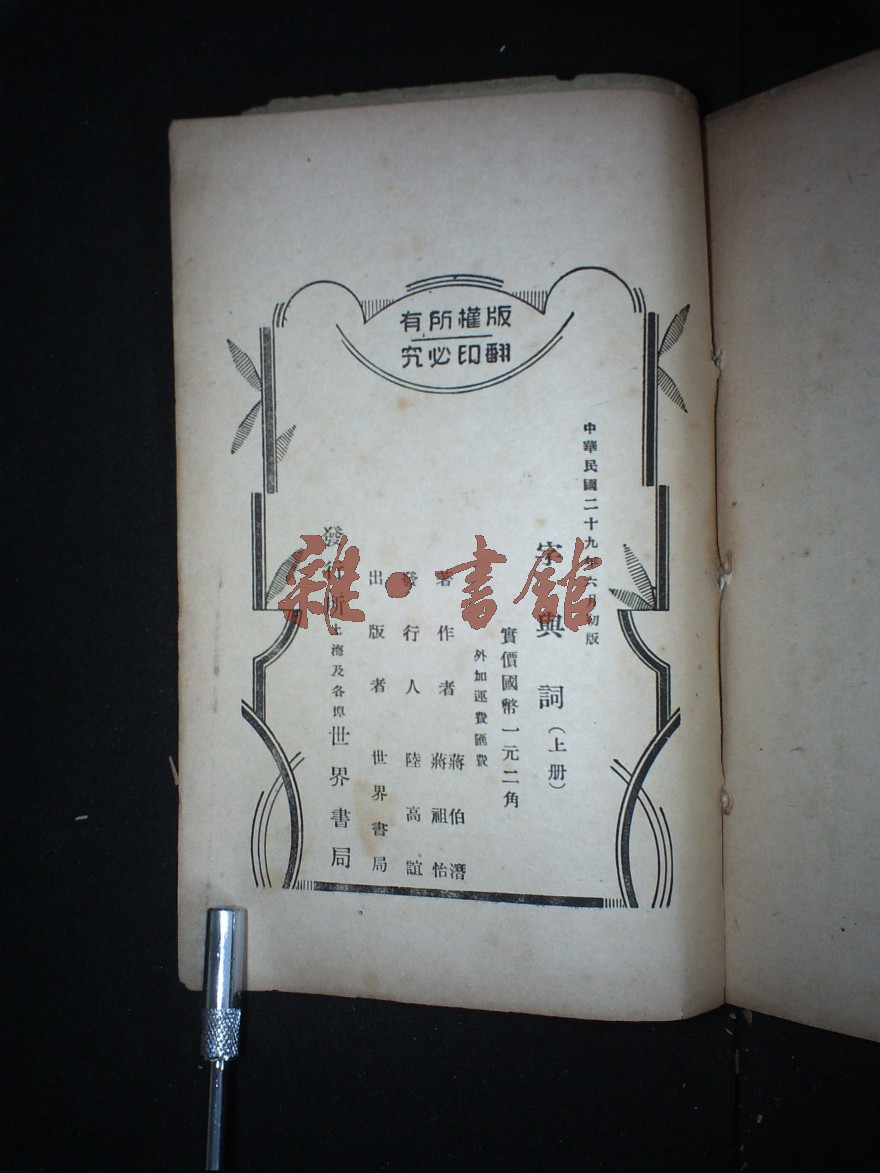 版權所有
翻印必究
中華民國二十九年六月初版
字與詞（上册）
實價國幣一元二角
外加運費匯費
著作者 蔣伯潛 蔣祖怡
發行人 陸高誼
出版者 世界書局
發行所 上海及各埠 世界書局
雜·書館